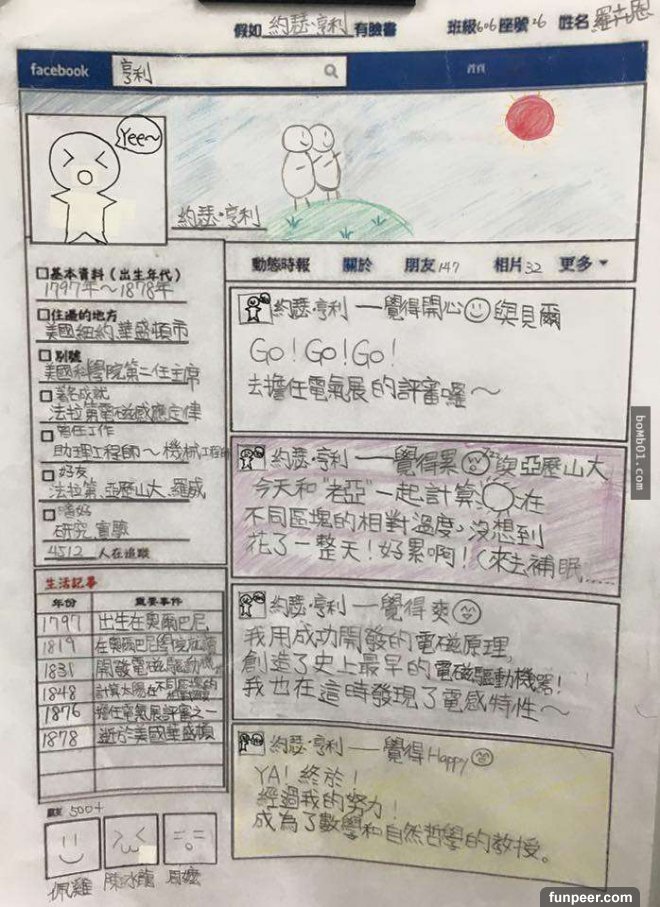 假如 約瑟·亨利 有臉書 班級606座號26 姓名羅卉恩
facebook 亨利
Yee~
約瑟·亨利
動態時報 關於 朋友147 相片32 更多
基本資料（出生年代）
1797年～1878年
住過的地方
美國紐約.華盛頓市
別號
美國科學院第二任主席
著名成就
法拉第電磁感應定律
曾任工作
助理工程師～機械工程師
好友
法拉第.亞歷山大.羅威
嗜好
研究.實驗
4512 人在追蹤
生活記事
年份 重要事件
1797 出生在奧爾巴尼
1819 在奧爾巴尼學院就讀
1831 開發電磁驅動機
1848 計算太陽在不同區塊的
1876 擔任電氣展評審之一
1878 逝於美國華盛頓
朋友 500+
佩雞
陳水龍
約瑟·亨利 — 覺得開心 與貝爾
Go！Go！Go！
去擔任電氣展的評審囉～
約瑟·亨利 — 覺得累 與亞歷山大
今天和"老亞"一起計算 在
不同區塊的相對溫度，沒想到
花了一整天！好累啊！（來去補眠
約瑟·亨利 — 覺得爽
我用成功開發的電磁原理，
創造了史上最早的電磁驅動機器！
我也在這時發現了電感特性～
約瑟·亨利 — 覺得Happy
YA！終於！
經過我的努力！
成為了數學和自然哲學的教授。
bomb01.com
funpeer.com